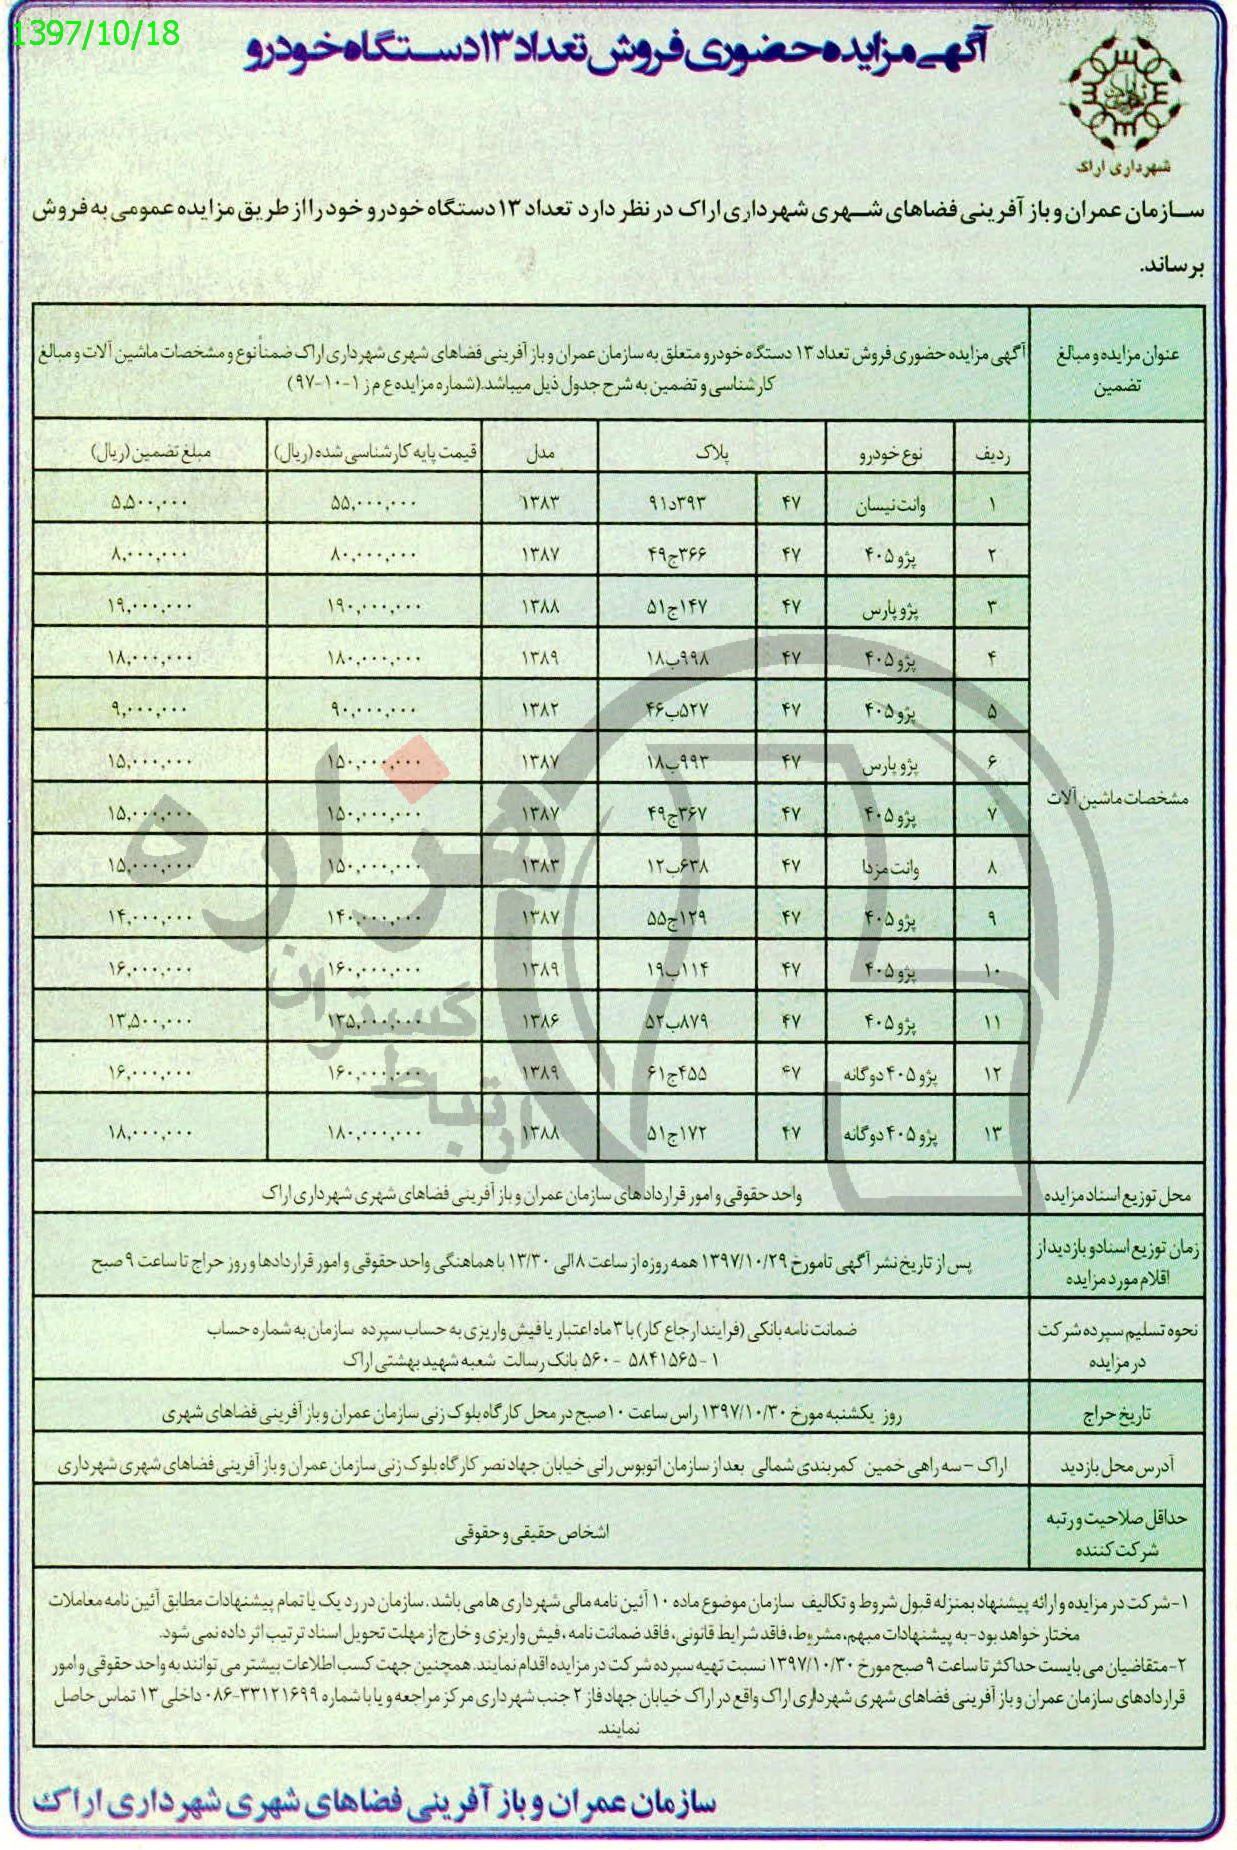 1397/10/18
آگهی مزایده حضوری فروش تعداد ۱۳ دستگاه خودرو
شهرداری اراک
سازمان عمران و باز آفرینی فضاهای شهری شهرداری اراک در نظر دارد تعداد ۱۳ دستگاه خودرو خود را از طریق مزایده عمومی به فروش
برساند.
عنوان مزایده و مبالغ تضمین
آگهی مزایده حضوری فروش تعداد ۱۳ دستگاه خودرو متعلق به سازمان عمران و باز آفرینی فضاهای شهری شهرداری اراک ضمناً نوع و مشخصات ماشین آلات و مبالغ
کارشناسی و تضمین به شرح جدول ذیل میباشد.(شماره مزایده ع م ز ۱-۱۰-۹۷)
مشخصات ماشین آلات
ردیف نوع خودرو پلاک مدل قیمت پایه کارشناسی شده (ریال) مبلغ تضمین (ریال)
۱ وانت نیسان ۴۷ ۳۹۳د۹۱ ۱۳۸۳ ۵۵,۰۰۰,۰۰۰ ۵,۵۰۰,۰۰۰
۲ پژو ۴۰۵ ۴۷ ۳۶۶ج۴۹ ۱۳۸۷ ۸۰,۰۰۰,۰۰۰ ۸,۰۰۰,۰۰۰
۳ پژو پارس ۴۷ ۱۴۷ج۵۱ ۱۳۸۸ ۱۹۰,۰۰۰,۰۰۰ ۱۹,۰۰۰,۰۰۰
۴ پژو ۴۰۵ ۴۷ ۹۹۸ب۱۸ ۱۳۸۹ ۱۸۰,۰۰۰,۰۰۰ ۱۸,۰۰۰,۰۰۰
۵ پژو ۴۰۵ ۴۷ ۵۲۷ب۴۶ ۱۳۸۲ ۹۰,۰۰۰,۰۰۰ ۹,۰۰۰,۰۰۰
۶ پژو پارس ۴۷ ۹۹۳ب۱۸ ۱۳۸۷ ۱۵۰,۰۰۰,۰۰۰ ۱۵,۰۰۰,۰۰۰
۷ پژو ۴۰۵ ۴۷ ۳۶۷ج۴۹ ۱۳۸۷ ۱۵۰,۰۰۰,۰۰۰ ۱۵,۰۰۰,۰۰۰
۸ وانت مزدا ۴۷ ۶۳۸ب۱۲ ۱۳۸۳ ۱۵۰,۰۰۰,۰۰۰ ۱۵,۰۰۰,۰۰۰
۹ پژو ۴۰۵ ۴۷ ۱۲۹ج۵۵ ۱۳۸۷ ۱۴۰,۰۰۰,۰۰۰ ۱۴,۰۰۰,۰۰۰
۱۰ پژو ۴۰۵ ۴۷ ۱۱۴ب۱۹ ۱۳۸۹ ۱۶۰,۰۰۰,۰۰۰ ۱۶,۰۰۰,۰۰۰
۱۱ پژو ۴۰۵ ۴۷ ۸۷۹ب۵۲ ۱۳۸۶ ۱۳۵,۰۰۰,۰۰۰ ۱۳,۵۰۰,۰۰۰
۱۲ پژو ۴۰۵ دوگانه ۴۷ ۴۵۵ج۶۱ ۱۳۸۹ ۱۶۰,۰۰۰,۰۰۰ ۱۶,۰۰۰,۰۰۰
۱۳ پژو ۴۰۵ دوگانه ۴۷ ۱۷۲ج۵۱ ۱۳۸۸ ۱۸۰,۰۰۰,۰۰۰ ۱۸,۰۰۰,۰۰۰
محل توزیع اسناد مزایده واحد حقوقی و امور قراردادهای سازمان عمران و باز آفرینی فضاهای شهری شهرداری اراک
زمان توزیع اسناد و بازدید از
اقلام مورد مزایده
پس از تاریخ نشر آگهی تا مورخ ۱۳۹۷/۱۰/۲۹ همه روزه از ساعت ۸ الی ۱۳/۳۰ با هماهنگی واحد حقوقی و امور قراردادها و روز حراج تا ساعت ۹ صبح
نحوه تسلیم سپرده شرکت
در مزایده
ضمانت نامه بانکی (فرایند ارجاع کار) با ۳ ماه اعتبار یا فیش واریزی به حساب سپرده سازمان به شماره حساب
۱-۵۸۴۱۵۶۵ -۵۶۰ بانک رسالت شعبه شهید بهشتی اراک
تاریخ حراج روز یکشنبه مورخ ۱۳۹۷/۱۰/۳۰ راس ساعت ۱۰ صبح در محل کارگاه بلوک زنی سازمان عمران و باز آفرینی فضاهای شهری
آدرس محل بازدید اراک - سه راهی خمین کمربندی شمالی بعد از سازمان اتوبوس رانی خیابان جهاد نصر کارگاه بلوک زنی سازمان عمران و باز آفرینی فضاهای شهری شهرداری
حداقل صلاحیت و رتبه
شرکت کننده
اشخاص حقیقی و حقوقی
۱-شرکت در مزایده و ارائه پیشنهاد بمنزله قبول شروط و تکالیف سازمان موضوع ماده ۱۰ آئین نامه مالی شهرداری ها می باشد. سازمان در رد یک یا تمام پیشنهادات مطابق آئین نامه معاملات
مختار خواهد بود- به پیشنهادات مبهم، مشروط، فاقد شرایط قانونی، فاقد ضمانت نامه، فیش واریزی و خارج از مهلت تحویل اسناد ترتیب اثر داده نمی شود.
۲-متقاضیان می بایست حداکثر تا ساعت ۹ صبح مورخ ۱۳۹۷/۱۰/۳۰ نسبت تهیه سپرده شرکت در مزایده اقدام نمایند. همچنین جهت کسب اطلاعات بیشتر می توانند به واحد حقوقی و امور
قراردادهای سازمان عمران و باز آفرینی فضاهای شهری شهرداری اراک واقع در اراک خیابان جهاد فاز ۲ جنب شهرداری مرکز مراجعه و یا با شماره ۳۳۱۲۱۶۹۹-۰۸۶ داخلی ۱۳ تماس حاصل
نمایند.
سازمان عمران و باز آفرینی فضاهای شهری شهرداری اراک
هزاره
گستران
ارتباط